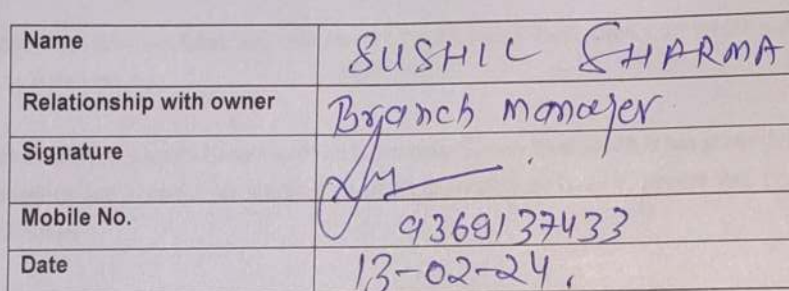 Name SUSHIL SHARMA
Relationship with owner Branch manager
Signature
Mobile No. 9369137433
Date 13-02-24.